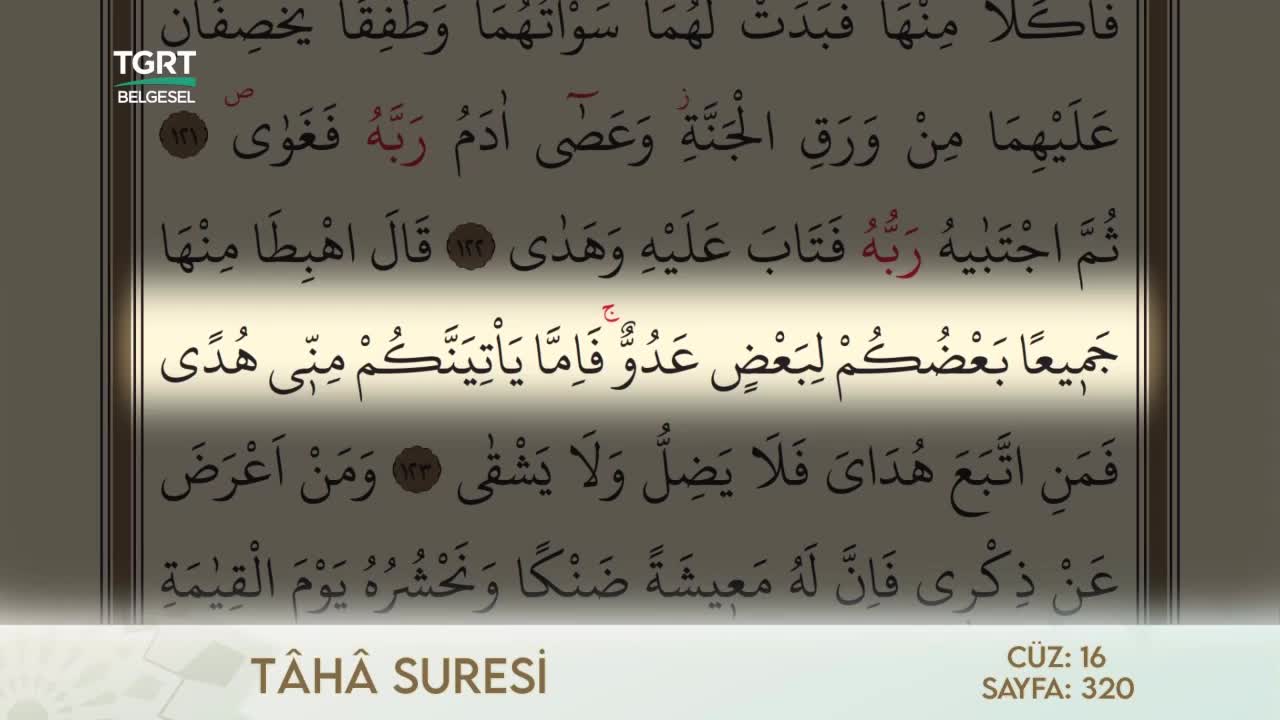 فَاَكَلَا مِنْهَا فَبَدَتْ لَهُمَا سَوْاٰتُهُمَا وَطَفِقَا يَخْصِفَانِ
TGRT
BELGESEL
عَلَيْهِمَا مِنْ وَرَقِ الْجَنَّةِۘ وَعَصٰٓى اٰدَمُ رَبَّهُ فَغَوٰىۖ ﴿١٢١﴾
ثُمَّ اجْتَبٰيهُ رَبُّهُ فَتَابَ عَلَيْهِ وَهَدٰى ﴿١٢٢﴾ قَالَ اهْبِطَا مِنْهَا
جَم۪يعًا بَعْضُكُمْ لِبَعْضٍ عَدُوٌّۚ فَاِمَّا يَأْتِيَنَّكُمْ مِنّ۪ى هُدًى
فَمَنِ اتَّبَعَ هُدَاىَ فَلَا يَضِلُّ وَلَا يَشْقٰى ﴿١٢٣﴾ وَمَنْ اَعْرَضَ
عَنْ ذِكْر۪ى فَاِنَّ لَهُ مَع۪يشَةً ضَنْكًا وَنَحْشُرُهُ يَوْمَ الْقِيٰمَةِ
TÂHÂ SURESİ
CÜZ: 16
SAYFA: 320